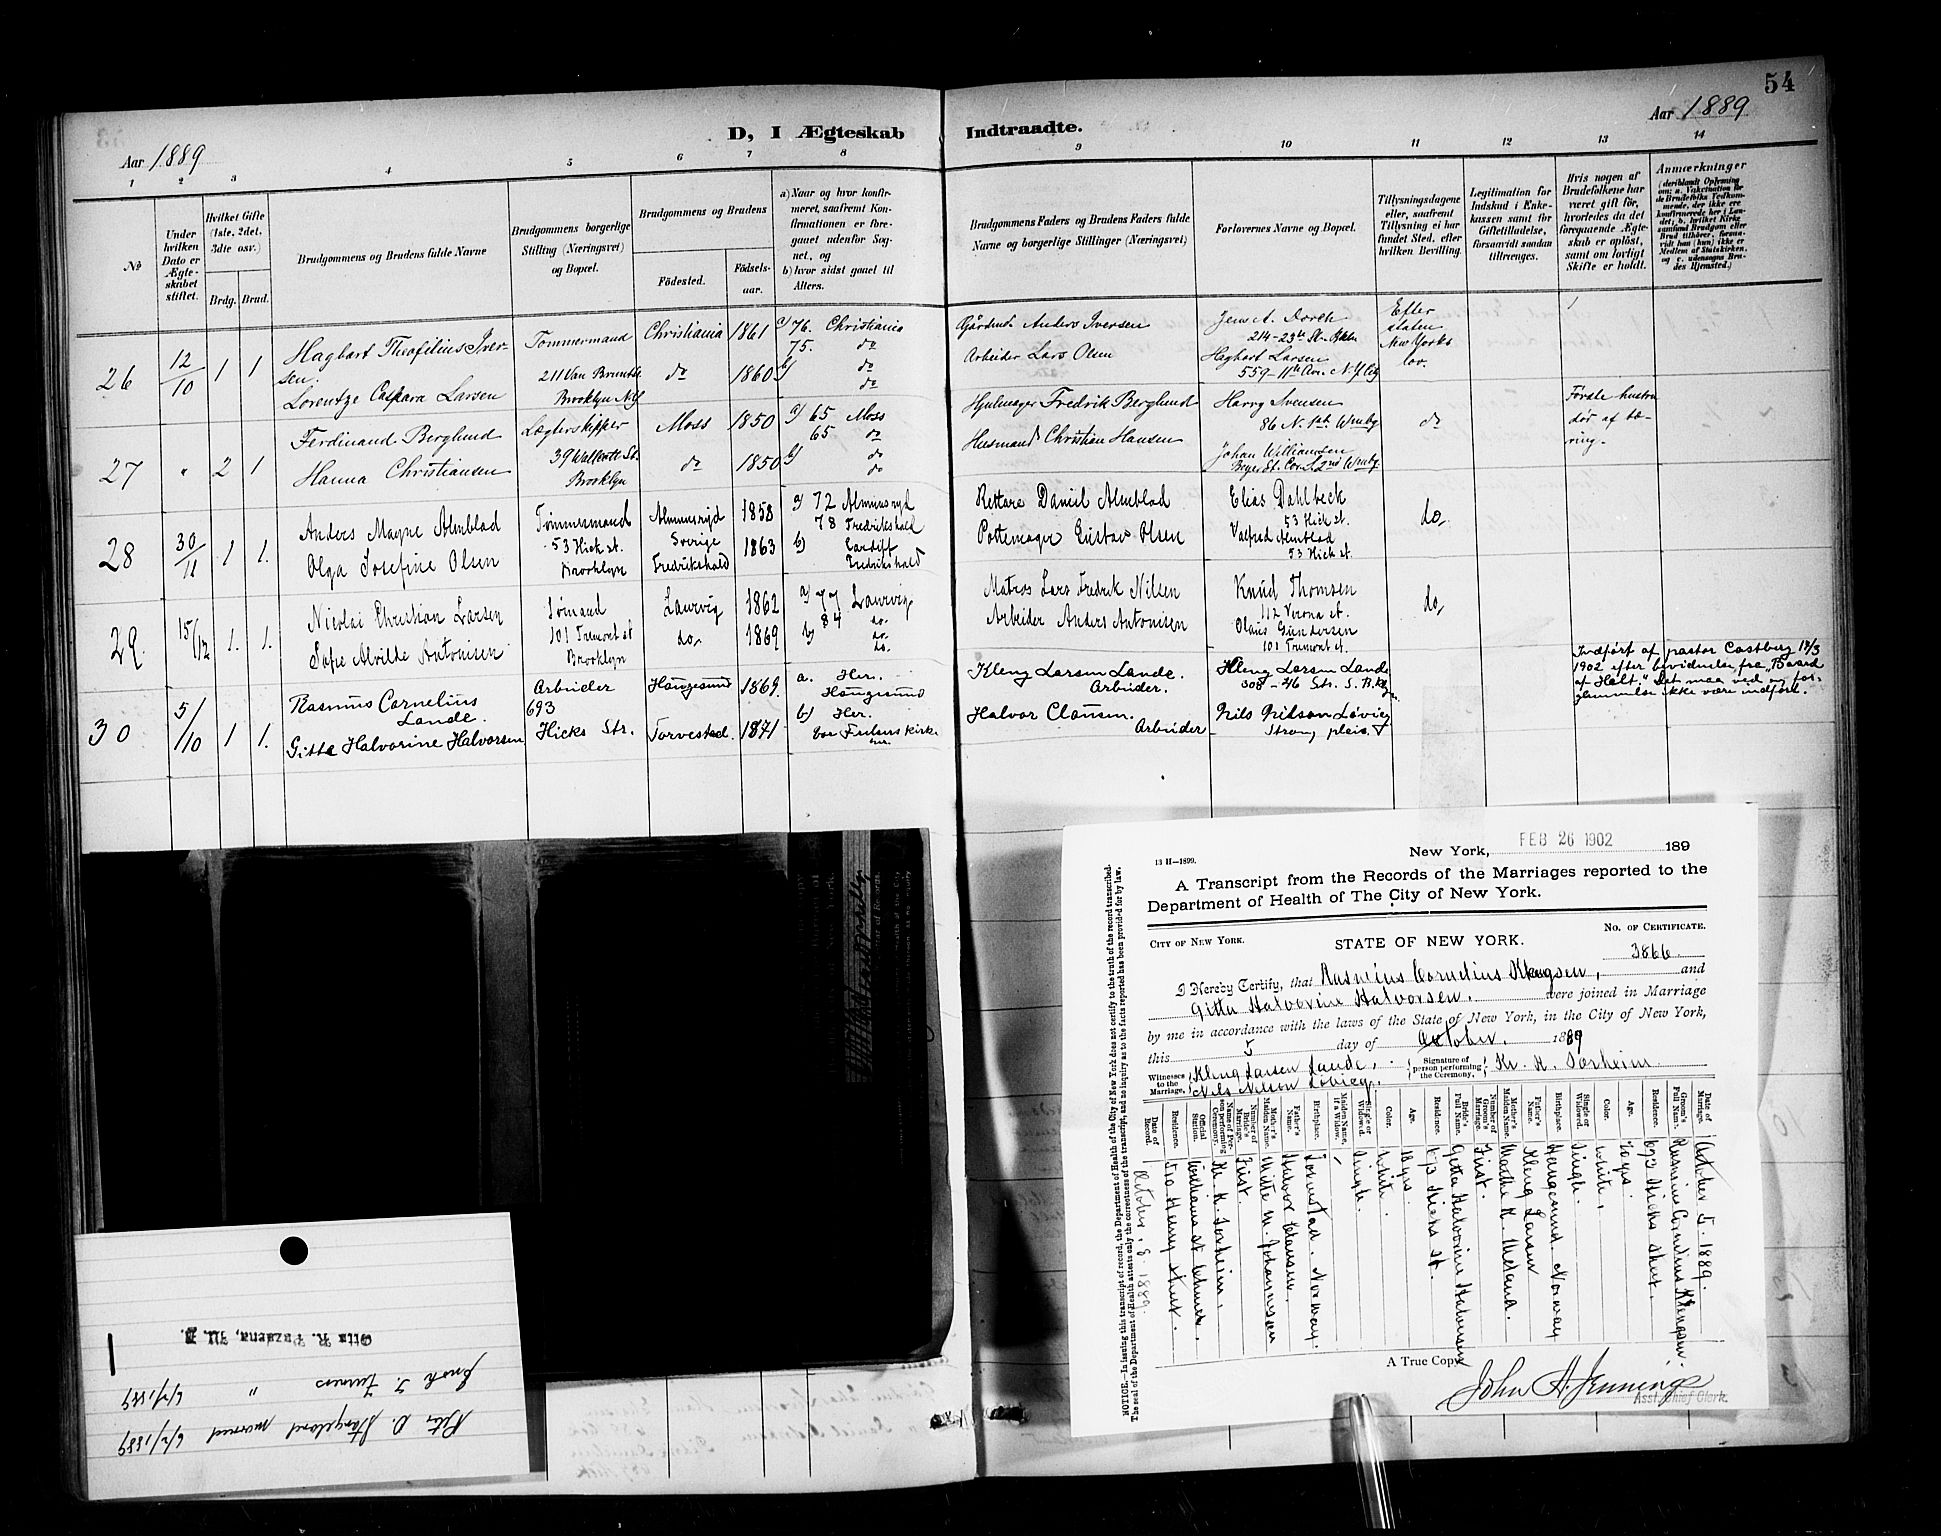 54
D, I Ægteskab Indtraadte.
Aar 1889
Aar 1889
1 2 3 4 5 6 7 8 9 10 11 12 13 14
No
Under hvilken Dato er Ægteskabet stiftet.
Hvilket Gifte (1ste, 2det, 3dte osv.)
Brdg. Brud.
Brudgommens og Brudens fulde Navne
Brudgommens borgerlige Stilling (Næringsvei) og Bopæl.
Brudgommens og Brudens
Fødested.
Fødsels-aar.
a) Naar og hvor konfir-
meret, saafremt Kon-
firmationen er fore-
gaaet udenfor Sog-
net, og
b) hvor sidst gaaet til
Alters.
Brudgommens Faders og Brudens Faders fulde
Navne og borgerlige Stillinger (Næringsvei)
Forlovernes Navne og Bopæl.
Tillysningsdagene
eller, saafremt
Tillysning ei har
fundet Sted, efter
hvilken Bevilling.
Legitimation for
Indskud i Enke-
kassen samt for
Giftetilladelse,
forsaavidt saadan
tiltrænges.
Hvis nogen af
Brudefolkene har
været gift før,
hvorledes da det
foregaaende Ægte-
skab er opløst,
samt om lovligt
Skifte er holdt.
Anmærkninger
26
12/10
1 1
Hagbart Theofilius Iver-
sen.
Lorentze Caspara Larsen
Tømmermand
211 Van Bruntst.
Brooklyn NY
Christiania 1861
do 1860
a) 76. Christiania
75. do
b) do
do
Gårdmd. Anders Iversen
Arbeider Lars Olsen
214-23th St. Bkln
Hagbart Larsen
559-11th Ave. N.Y. City
Efter
staten
New Yorks
lov.
27
"
2 1
Ferdinand Berglund
Hanna Christiansen
Lægterskipper
39 Wallcott St.
Brooklyn
Moss 1850
do 1850
a) 65 Moss
65 do
b) do
do
Hjulmager Fredrik Berglund
Husmand Christian Hansen
Harry Svensen
86 N. 1st Wmbg
Johan Williamsen
do
Første hustru
dør af tæ-
ring.
28
30/11
1 1.
Anders Magne Almblad
Olga Josefine Olsen
Tømmermand
53 Hick st.
Brooklyn
Almunsryd 1858
Sverige
Fredrikshald 1863
a) 72 Almunsryd
78 Fredrikshald
b) Cardiff
Fredrikshald
Rettare Daniel Almblad
Pottemager Gustav Olsen
Elias Dahlbeck
53 Hick st.
Valfred Almblad
53 Hick st.
do,
29.
15/12
1. 1.
Nicolai Christian Larsen
Sofie Alvilde Antonisen
Sømand
101 Tremont st
Brooklyn
Laurvig 1862
do, 1869
a) 77 Laurvig
84 do.
b) do.
do.
Matros Lars Fredrik Nilsen
Arbeider Anders Antonisen
Knud Thomsen
112 Verona st.
Olaus Gundersen
101 Tremont st.
do,
30
5/10
1 1.
Rasmus Cornelius
Lande.
Gitta Halvorine Halvorsen
Arbeider
693
Hicks Str.
Haugesund 1869.
Torvestad. 1871
a. Her.
Haugesund
b) Her.
Vor Frelsers kirk-
Kleng Larsen Lande.
Arbeider.
Halvor Clausen.
Arbeider
Kleng Larsen Lande
308 - 26 Str. S. Bklyn
Nils Nilson Løvieg
Strong place
Indført af pastor Castberg 17/3
1902 efter bevidnelse fra "Board
of Helt." Det maa ved en for-
glemmelse ikke være indført.
New York, FEB 26 1902 189
13 H—1899.
A Transcript from the Records of the Marriages reported to the
Department of Health of The City of New York.
City of New York.
STATE OF NEW YORK.
No. of Certificate.
3866
I Hereby Certify, that Rasmus Cornelius Klengsen, and
Gitta Halvorine Halvorsen. were joined in Marriage
by me in accordance with the laws of the State of New York, in the City of New York,
this 5 day of October. 1889
Witnesses to the Marriage,
Kleng Larsen Lande,
Nils Nelson Lövieg.
Signature of person performing the Ceremony,
Kr. K. Sørheim
Date of Marriage. October 5. 1889.
Groom's Full Name. Rasmus Cornelius Klengsen.
Residence. 693 Hicks street.
Age. 20 yrs.
Color. White.
Single or Widowed. Single.
Birthplace. Haugesund Norway
Father's Name. Kleng Larsen
Mother's Maiden Name. Marthe K. Meland.
Number of Groom's Marriage. First.
Bride's Full Name. Gitta Halvorine Halvorsen
Residence. 693 Hicks st.
Age. 18 yrs.
Color. White.
Single or Widowed. Single.
Maiden Name, if a Widow.
Birthplace. Torvestad. Norway.
Father's Name. Halvor Clausen.
Mother's Maiden Name. Mitte M. Johannesen
Number of Bride's Marriage. First.
Name of Person performing Ceremony. Kr. K. Sørheim.
Official Station.
Residence. Henry street.
Date of Record. October. 8 1889.
NOTICE.—In issuing this transcript of record, the Department of Health of the City of New York does not certify to the truth of the record transcribed.
The seal of the Department of Health attests only the correctness of the transcript, and no inquiry as to the facts reported has been provided for by law.
A True Copy
John A. Jennings
Asst Chief Clerk.
married 6/2/1889